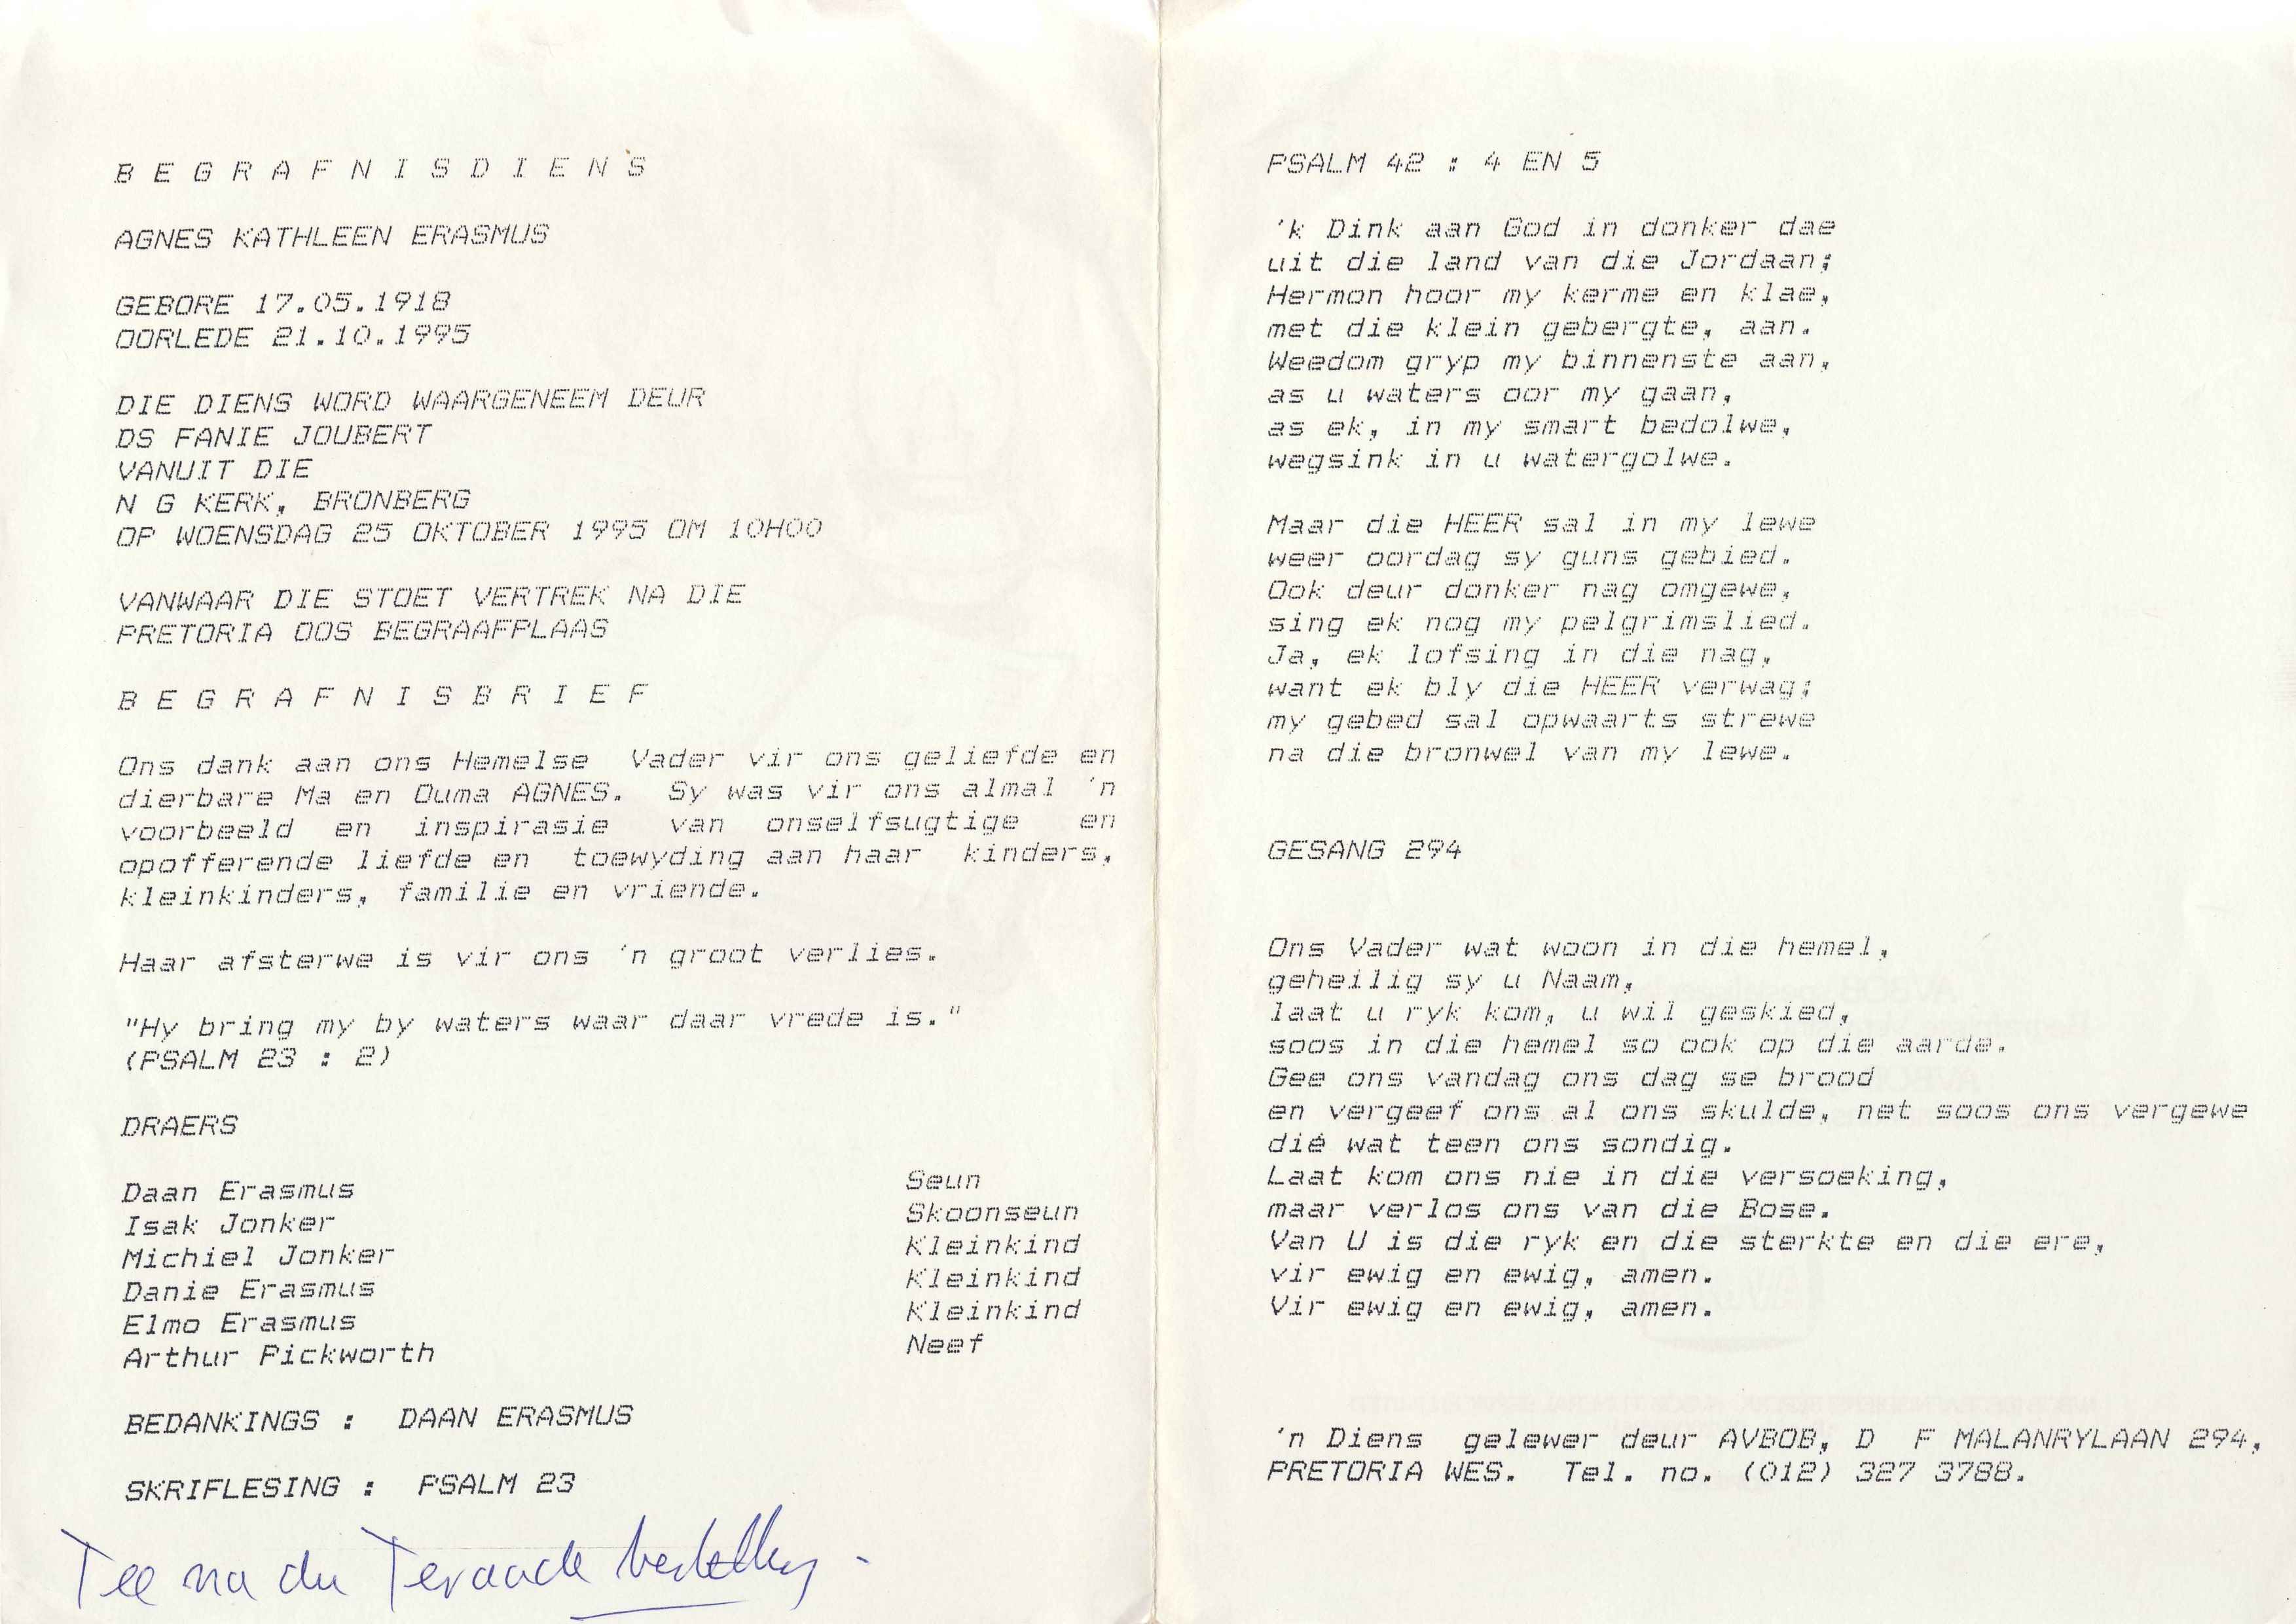 B E G R A F N I S D I E N S
AGNES KATHLEEN ERASMUS
GEBORE 17.05.1918
OORLEDE 21.10.1995
DIE DIENS WORD WAARGENEEM DEUR
DS FANIE JOUBERT
VANUIT DIE
N G KERK, BRONBERG
OP WOENSDAG 25 OKTOBER 1995 OM 10H00
VANWAAR DIE STOET VERTREK NA DIE
PRETORIA OOS BEGRAAFPLAAS
B E G R A F N I S B R I E F
Ons dank aan ons Hemelse Vader vir ons geliefde en
dierbare Ma en Ouma AGNES. Sy was vir ons almal 'n
voorbeeld en inspirasie van onselfsugtige en
opofferende liefde en toewyding aan haar kinders,
kleinkinders, familie en vriende.
Haar afsterwe is vir ons 'n groot verlies.
"Hy bring my by waters waar daar vrede is."
(PSALM 23 : 2)
DRAERS
Daan Erasmus Seun
Isak Jonker Skoonseun
Michiel Jonker Kleinkind
Danie Erasmus Kleinkind
Elmo Erasmus Kleinkind
Arthur Pickworth Neef
BEDANKINGS : DAAN ERASMUS
SKRIFLESING : PSALM 23
Tee na die Teraarde bestelling.
PSALM 42 : 4 EN 5
'k Dink aan God in donker dae
uit die land van die Jordaan;
Hermon hoor my kerme en klae,
met die klein gebergte, aan.
Weedom gryp my binnenste aan,
as u waters oor my gaan,
as ek, in my smart bedolwe,
wegsink in u watergolwe.
Maar die HEER sal in my lewe
weer oordag sy guns gebied.
Ook deur donker nag omgewe,
sing ek nog my pelgrimslied.
Ja, ek lofsing in die nag,
want ek bly die HEER verwag;
my gebed sal opwaarts strewe
na die bronwel van my lewe.
GESANG 294
Ons Vader wat woon in die hemel,
geheilig sy u Naam,
laat u ryk kom, u wil geskied,
soos in die hemel so ook op die aarde.
Gee ons vandag ons dag se brood
en vergeef ons al ons skulde, net soos ons vergewe
dié wat teen ons sondig.
Laat kom ons nie in die versoeking,
maar verlos ons van die Bose.
Van U is die ryk en die sterkte en die ere,
vir ewig en ewig, amen.
Vir ewig en ewig, amen.
'n Diens gelewer deur AVBOB, D F MALANRYLAAN 294,
PRETORIA WES. Tel. no. (012) 327 3788.